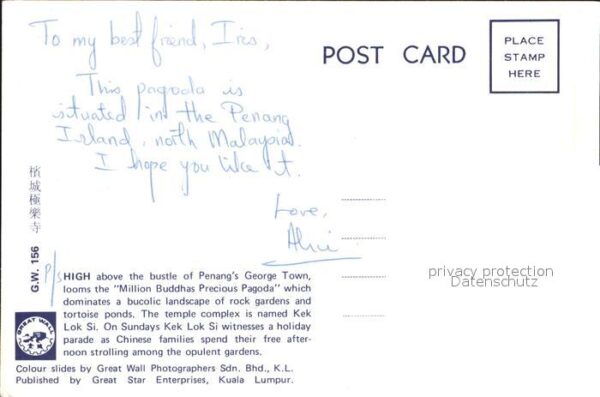 To my best friend, Iris,
This pagoda is
situated in the Penang
Island, north Malaysia.
I hope you like it.
Love,
POST CARD
PLACE
STAMP
HERE
檳城極樂寺
G.W. 156
P/S
HIGH above the bustle of Penang's George Town,
looms the "Million Buddhas Precious Pagoda" which
dominates a bucolic landscape of rock gardens and
tortoise ponds. The temple complex is named Kek
Lok Si. On Sundays Kek Lok Si witnesses a holiday
parade as Chinese families spend their free after-
noon strolling among the opulent gardens.
GREAT WALL
Colour slides by Great Wall Photographers Sdn. Bhd., K.L.
Published by Great Star Enterprises, Kuala Lumpur.
privacy protection
Datenschutz